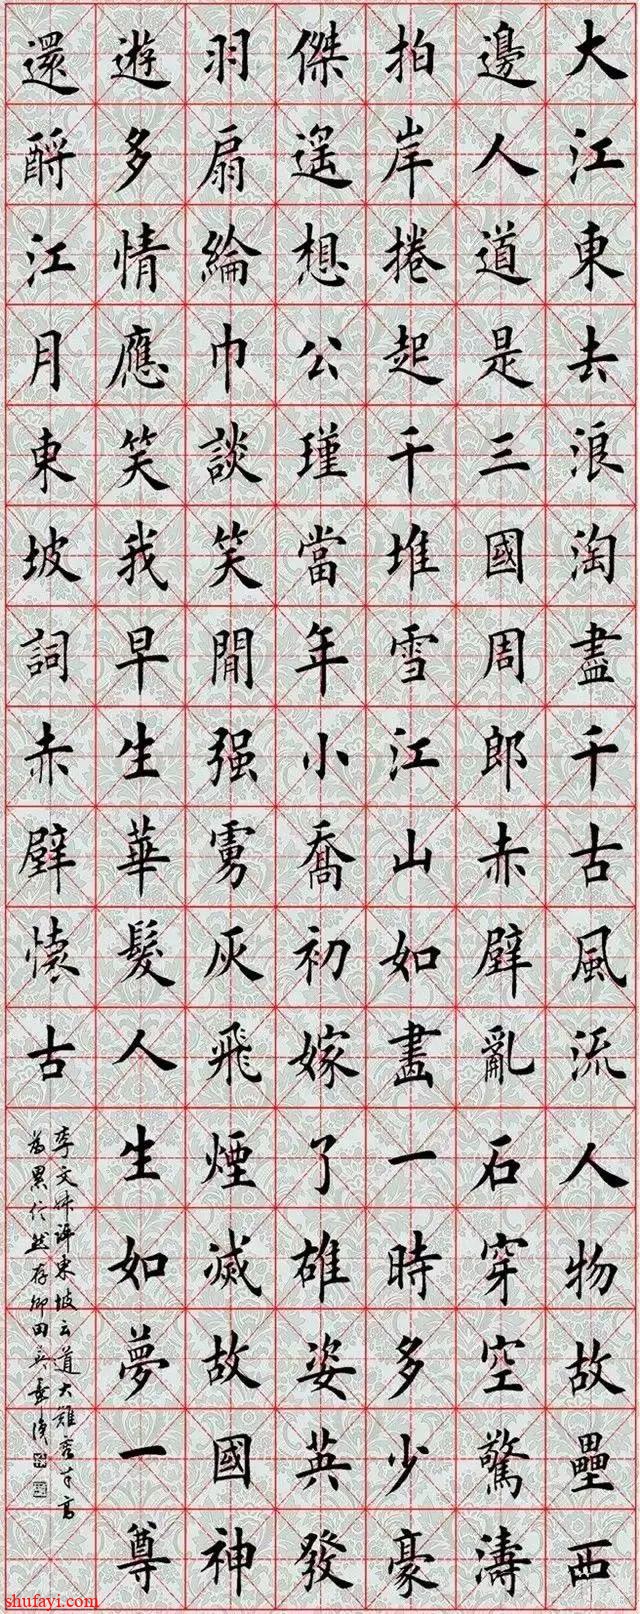 大江東去浪淘盡千古風流人物故壘西
邊人道是三國周郎赤壁亂石穿空驚濤
拍岸捲起千堆雪江山如畫一時多少豪
傑遙想公瑾當年小喬初嫁了雄姿英發
羽扇綸巾談笑間强虜灰飛煙滅故國神
遊多情應笑我早生華髮人生如夢一尊
還酹江月東坡詞赤壁懷古
李文叔評東坡云道大難容才高
為累信然存卿田英章
shufayi.com